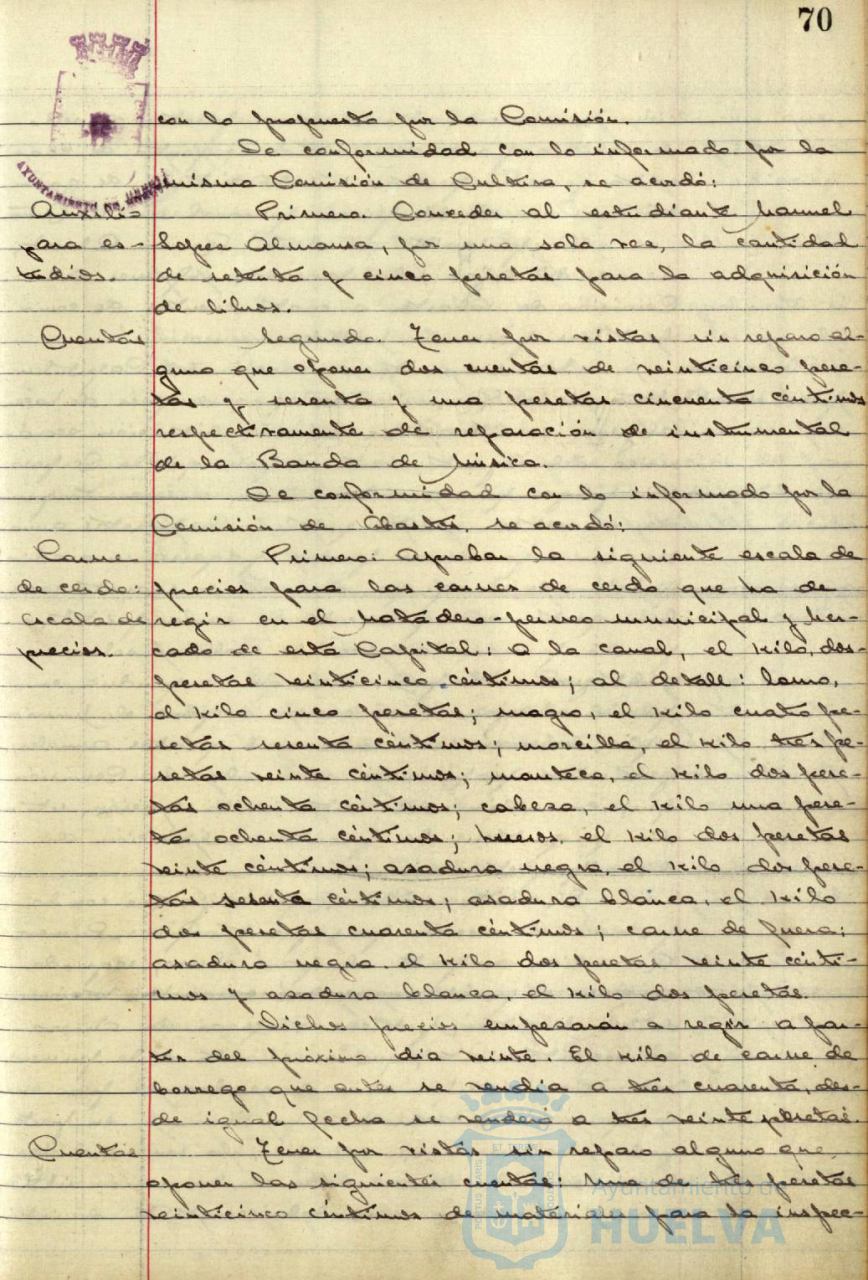 70
con lo propuesto por la Comisión.
De conformidad con lo informado por la
misma Comisión de Cultura, se acordó:
AYUNTAMIENTO DE HUELVA
Auxilio
para es-
tudios.
Primero. Conceder al estudiante Manuel
Lopez Almansa, por una sola vez, la cantidad
de setenta y cinco pesetas para la adquisición
de libros.
Cuentas
Segundo. Tener por vistas sin reparo al-
guno que oponer dos cuentas de veinticinco pese-
tas y sesenta y una pesetas cincuenta céntimos
respectivamente de reparación de instrumental
de la Banda de Música.
De conformidad con lo informado por la
Comisión de Abastos, se acordó:
Carne
de cerdo:
escala de
precios.
Primero: Aprobar la siguiente escala de
precios para las carnes de cerdo que ha de
regir en el Matadero-porcuno municipal y Mer-
cado de esta Capital: a la canal, el kilo, dos
pesetas veinticinco céntimos; al detall: lomo,
el kilo cinco pesetas; magro, el kilo cuatro pe-
setas sesenta céntimos; morcilla, el kilo tres pe-
setas veinte céntimos; manteca, el kilo dos pese-
tas ochenta céntimos; cabeza, el kilo una pese-
ta ochenta céntimos; huesos, el kilo dos pesetas
veinte céntimos; asadura negra, el kilo dos pese-
tas sesenta céntimos; asadura blanca, el kilo
dos pesetas cuarenta céntimos; carne de fuera:
asadura negra, el kilo dos pesetas veinte cénti-
mos y asadura blanca, el kilo dos pesetas.
Dichos precios empesarán a regir a par-
tir del próximo dia veinte. El kilo de carne de
borrego que antes se vendia a tres cuarenta, des-
de igual fecha se venderá a tres veinte pesetas.
Cuentas
Tener por vistas sin reparo alguno que
oponer las siguientes cuentas: Una de tres pesetas
veinticinco céntimos de materiales para la inspec-
Ayuntamiento de
HUELVA